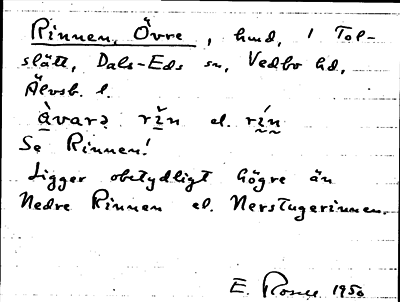 Rinnen, Övre, hmd, i Tol-
slätt, Dals-Eds sn, Vedbo hd,
Älvsb. l.
àvarə rǐn el. rín
Se Rinnen!
Ligger obetydligt högre än
Nedre Rinnen el. Nerstugerinnen.
E. 1950